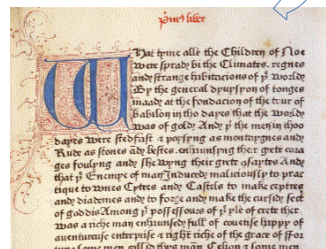 p̄mꝰ liber
What tyme alle the Children of Noe
Were sprade bi the Climates. regnes
and strange habitacions of þe worlde
By the general dyuysyon of tonges
maade at the fondacion of the tour of
babilon in tho dayes that the worlde
was of gold. And þe men in thoo
dayes were stedfast &
Rude as stones and bestes. their grete cora
ges and shewyng their grete
that þe Enemye of man Induced maliciously to prac
tique to wnes Cytees and Castels to make ceptres
and diademes and to forge and make the cursid sect
of goddis Among þe possessours of þe yle of crete ther
was a riche man full of couetise happy of
auentureuse enterprise & right riche of the grace of ffor